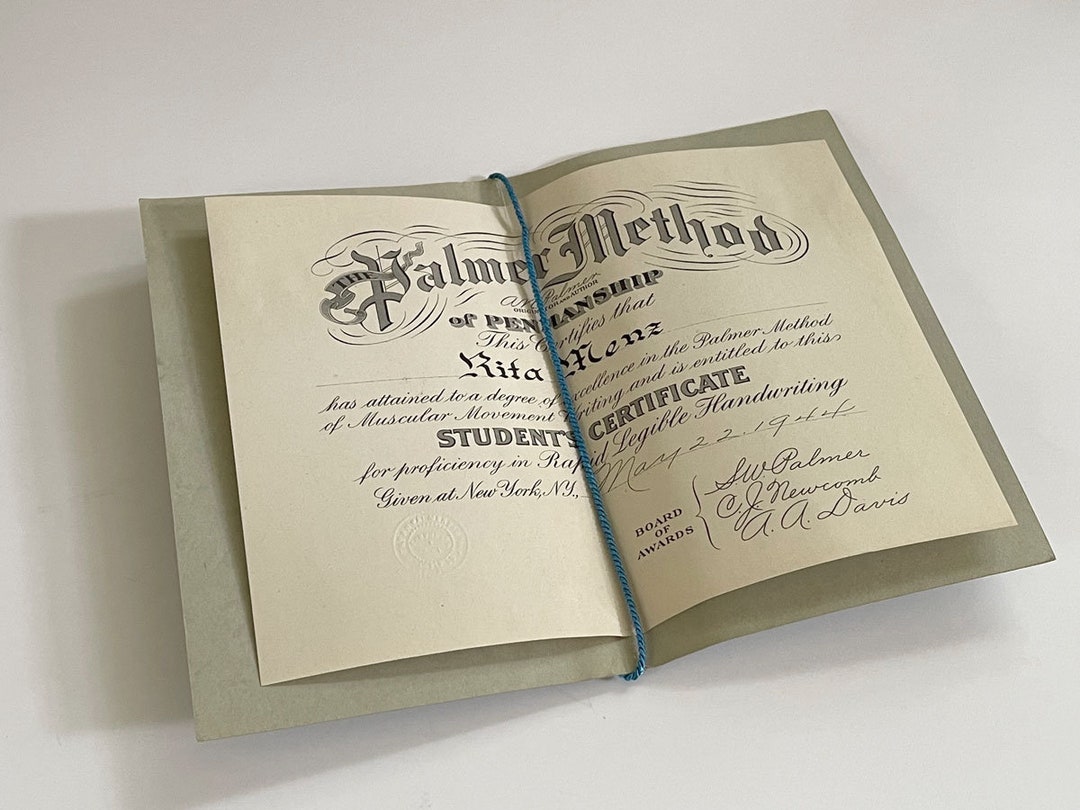 THE Palmer Method
A.N. Palmer
ORIGINATOR AND AUTHOR
of PENMANSHIP
This Certifies that
Rita Menz
has attained to a degree of excellence in the Palmer Method
of Muscular Movement Writing and is entitled to this
STUDENT'S CERTIFICATE
for proficiency in Rapid Legible Handwriting
Given at New York, N.Y., May 22. 1944
BOARD
OF
AWARDS
S.W. Palmer
C. J. Newcomb
A. A. Davis